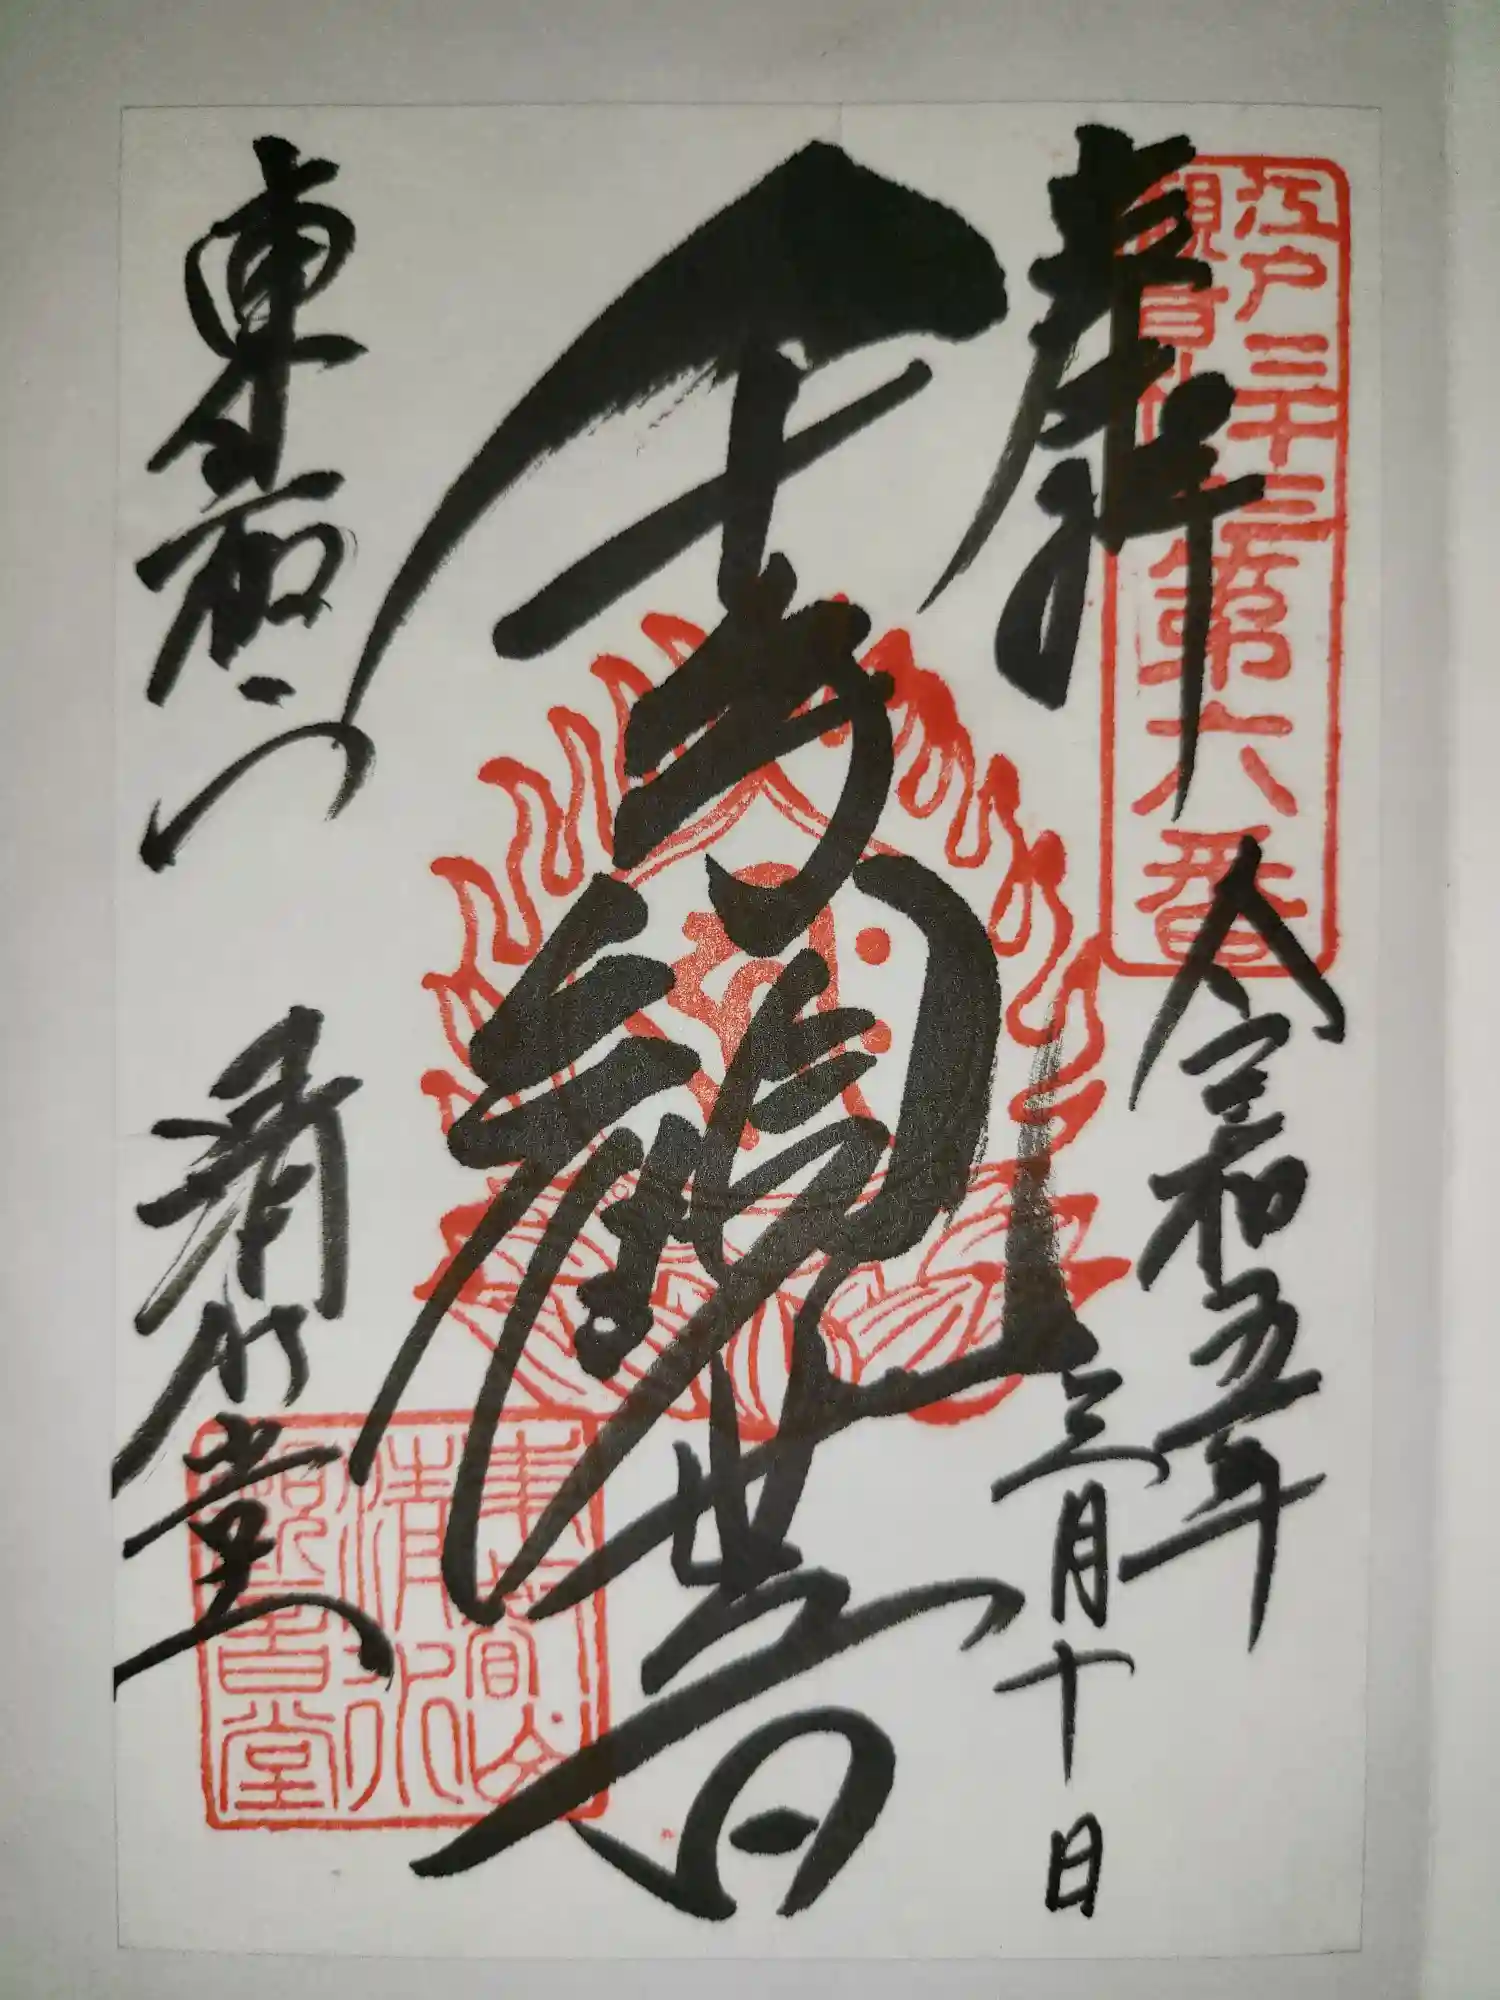 江戸三十三
観音札所第六番
奉拝
令和五年
三月十日
千手観世音
東叡山
清水堂
東叡山
清水
観音堂